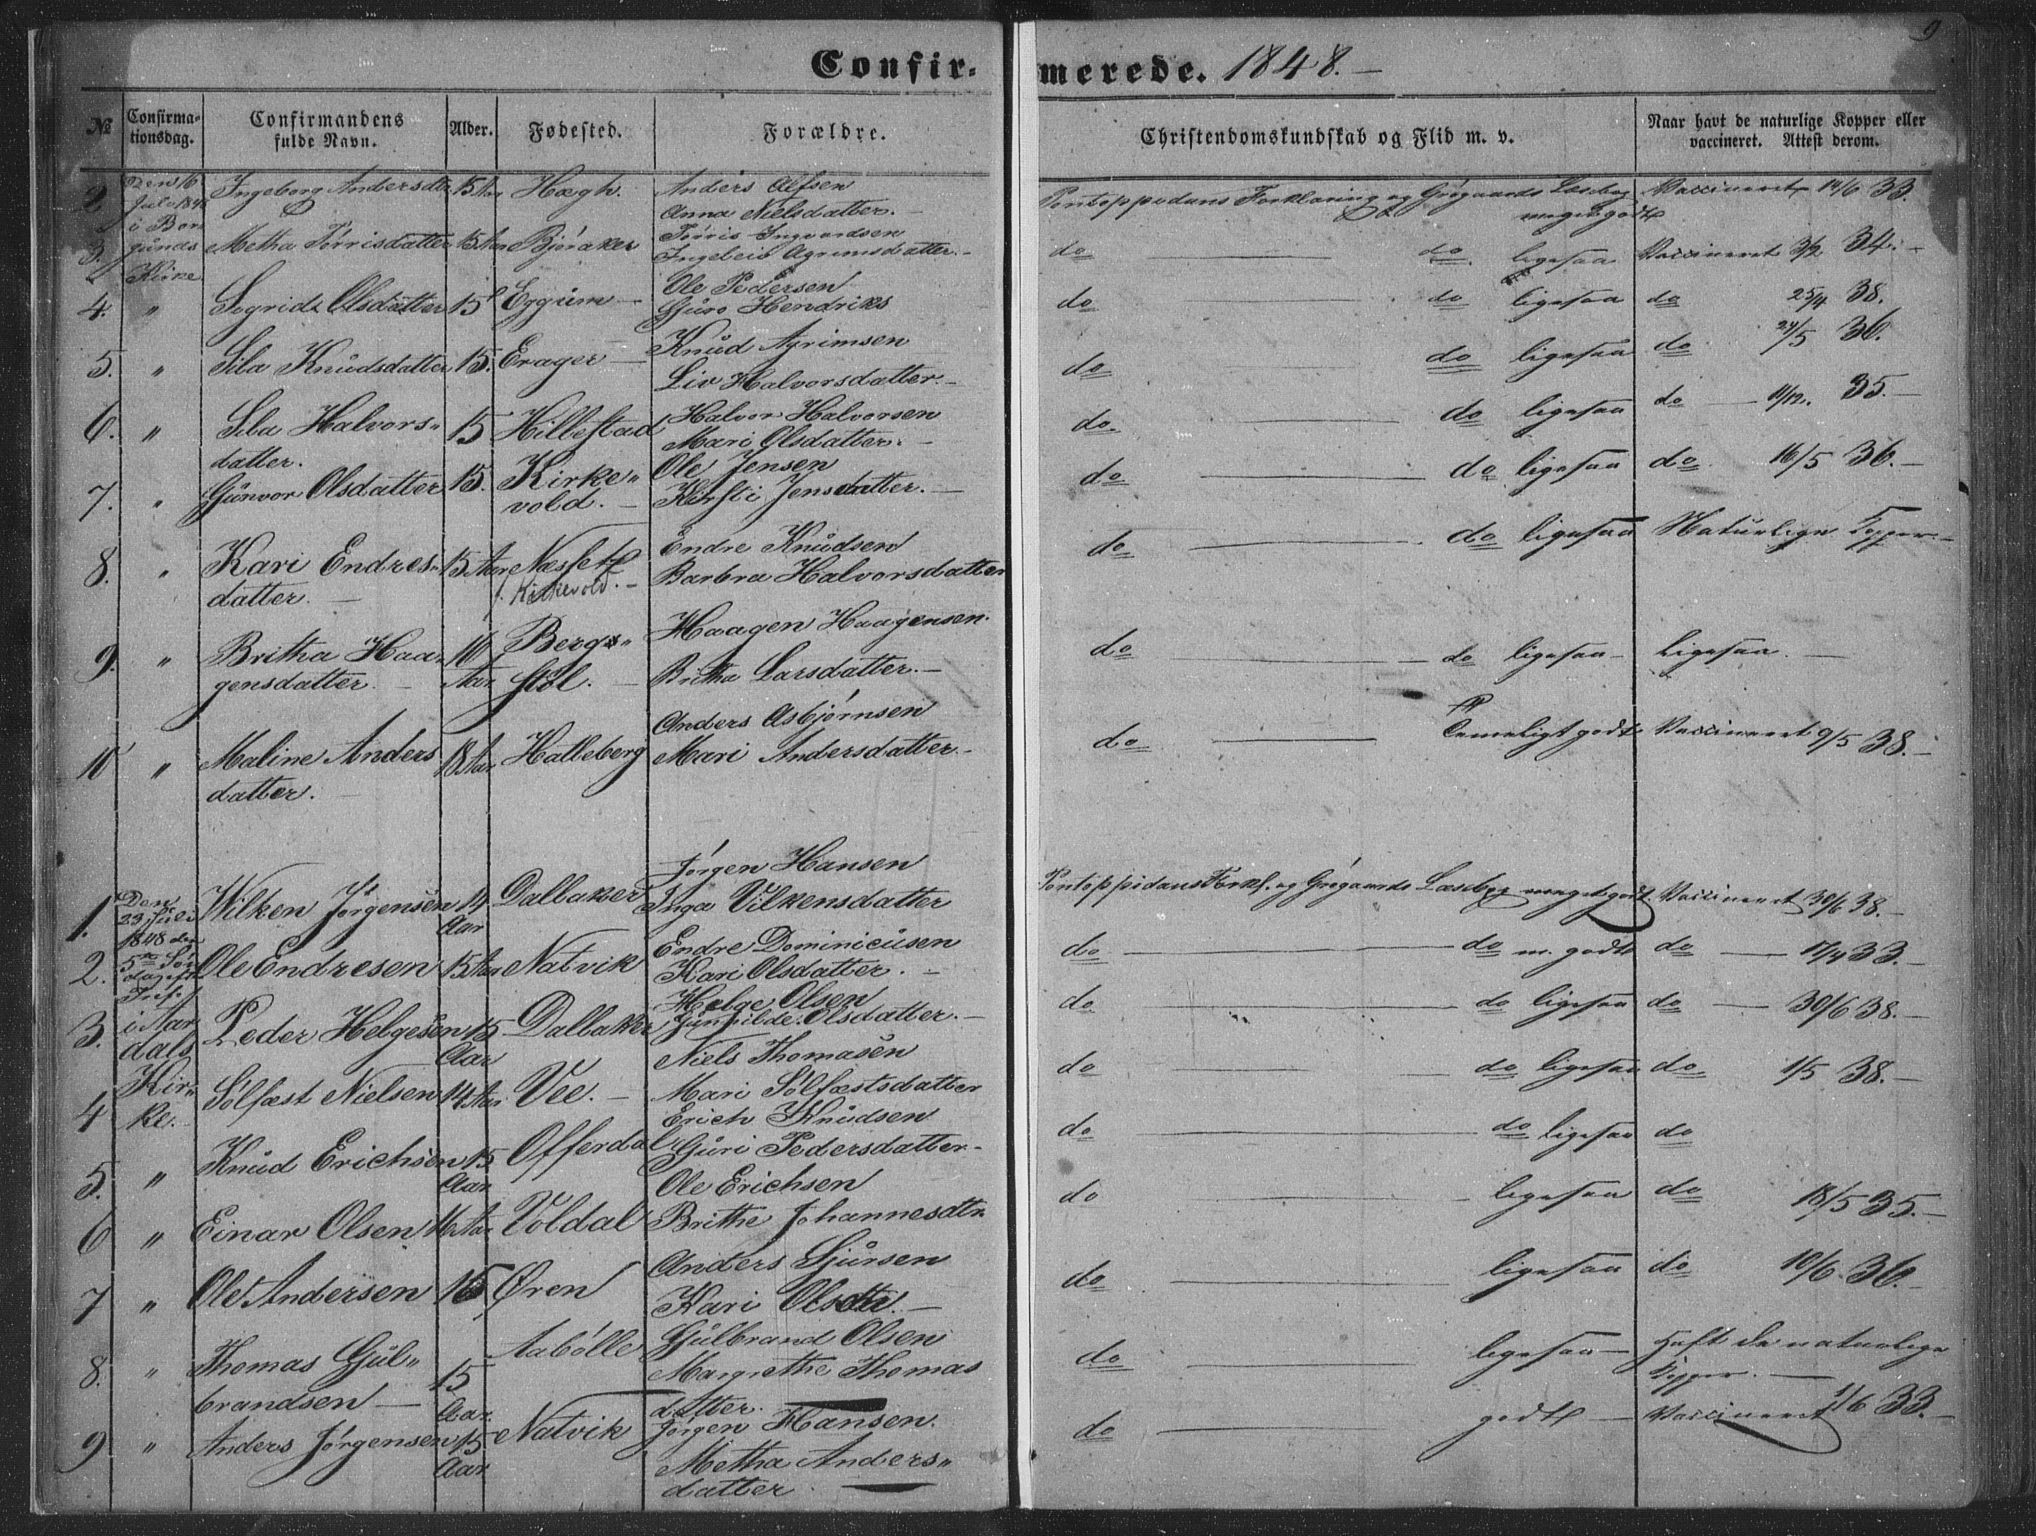 9
Confirmerede. 1848.
№ Confirmationsdag. Confirmandens fulde Navn. Alder. Fødested. Forældre. Christendomskundskab og Flid m. v. Naar havt de naturlige Kopper eller vaccineret. Attest derom.
2. Den 16 Juli 1848 Ingeborg Andersdtr 15 Aar Hægh. Anders Alfsen Pontoppidans Forklaring og Grøgaards Læsebog Vaccineret 14/6 33.
Anna Nielsdatter. meget godt
3. i Borgunds Kirke Metha Tørrisdatter 15 Aar Bjøraker Tørris Ingvardsen
Ingebeir Agrimsdatter. do do. ligesaa Vaccineret 3/2 34.
4. " Sogrida Olsdatter 15 Eggum Ole Pedersen
Gjuro Hendriks do do ligesaa do 25/4 38.
5. " Sila Knudsdatter 15. Erager Knud Agrimsen
Liv Halvorsdatter. do do ligesaa do 27/5 36.
6. " Sila Halvors- 15 Hillestad Halvor Halvorsen
datter. Mari Olsdatter. do. do ligesaa do 11/12. 35.
7. " Gunvor Olsdatter 15. Kirke- Ole Jensen
vold. Kirsti Jensdatter. do do ligesaa do 16/5 36.
8. " Kari Endres- 15 Aar Næsset Endre Knudsen
datter. Kirkevold. Barbra Halvorsdatter do do ligesaa Naturlige Kopper
9. " Britha Haa- 16 Bergs- Haagen Haagensen.
gensdatter. Aar støl. Britha Larsdatter. do do ligesaa Ligesaa.
10 " Maline Anders 18 Aar Halleberg Anders Asbjørnsen
datter. Mari Andersdatter do Temeligt godt Vaccineret 9/5 38.
1. Den 23 Juli 1848 Wilken Jørgensen 14 Aar Dalbaker Jørgen Hansen
Inga Vilkensdatter Pontoppidans Forkl. og Grøgaards Læsebog meget godt Vaccineret 30/6 38.
2. Ole Endresen 15 Aar Natvik Endre Dominicusen
Kari Olsdatter. do do m. godt do 17/4 33.
3. i Aar dals Peder Helgesen 15 Aar Dalbaker Helge Olsen
Gunhilde Olsdatter. do do ligesaa do 30/6 38.
4 Kir- ke. Sølfæst Nielsen 14 Aar Vee. Niels Thomasen
Mari Sølfæstsdatter do do ligesaa do 1/5 38.
5. " Knud Erichsen 15 Aar Offerdal Erich Knudsen
Guri Pedersdatter do do ligesaa do
6 " Einar Olsen 16 Aar Voldal Ole Erichsen
Brithe Johannesdtr. do ligesaa do 18/5 35.
7 " Ole Andersen 16 Øren Anders Sjursen
Kari Olsdtr. do ligesaa do 10/6. 36.
8. " Thomas Gul- 15 Aabølle Gulbrand Olsen
brandsen Aar. Margrethe Thomas
datter. do ligesaa Haft de naturlige Kopper.
9 " Anders Jørgensen 15 Aar Natvik Jørgen Hansen.
Metha Anders-
datter do godt Vaccineret 1/6 33.